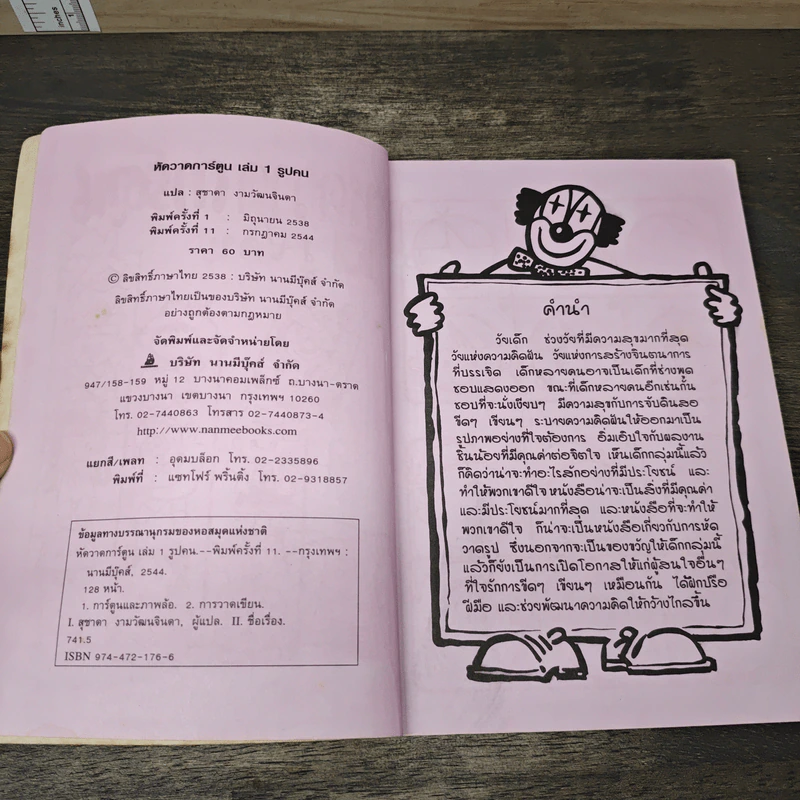 inches
1
หัดวาดการ์ตูน เล่ม 1 รูปคน
แปล : สุชาดา งามวัฒนจินดา
พิมพ์ครั้งที่ 1 : มิถุนายน 2538
พิมพ์ครั้งที่ 11 : กรกฎาคม 2544
ราคา 60 บาท
© ลิขสิทธิ์ภาษาไทย 2538 : บริษัท นานมีบุ๊คส์ จำกัด
ลิขสิทธิ์ภาษาไทยเป็นของบริษัท นานมีบุ๊คส์ จำกัด
อย่างถูกต้องตามกฎหมาย
จัดพิมพ์และจัดจำหน่ายโดย
บริษัท นานมีบุ๊คส์ จำกัด
947/158-159 หมู่ 12 บางนาคอมเพล็กซ์ ถ.บางนา-ตราด
แขวงบางนา เขตบางนา กรุงเทพฯ 10260
โทร. 02-7440863 โทรสาร 02-7440873-4
http://www.nanmeebooks.com
แยกสี/เพลท : อุดมบล็อก โทร. 02-2335896
พิมพ์ที่ : แซทโฟร์ พริ้นติ้ง โทร. 02-9318857
ข้อมูลทางบรรณานุกรมของหอสมุดแห่งชาติ
หัดวาดการ์ตูน เล่ม 1 รูปคน.--พิมพ์ครั้งที่ 11. --กรุงเทพฯ :
นานมีบุ๊คส์, 2544.
128 หน้า.
1. การ์ตูนและภาพล้อ. 2. การวาดเขียน.
I. สุชาดา งามวัฒนจินดา, ผู้แปล. II. ชื่อเรื่อง.
741.5
ISBN 974-472-176-6
คำนำ
วัยเด็ก ช่วงวัยที่มีความสุขมากที่สุด
วัยแห่งความคิดฝัน วัยแห่งการสร้างจินตนาการ
ที่บรรเจิด เด็กหลายคนอาจเป็นเด็กที่ช่างพูด
ชอบแสดงออก ขณะที่เด็กหลายคนอีกเช่นกัน
ชอบที่จะนั่งเงียบๆ มีความสุขกับการจับดินสอ
ขีดๆ เขียนๆ ระบายความคิดฝันให้ออกมาเป็น
รูปภาพอย่างที่ใจต้องการ อิ่มเอิบใจกับผลงาน
ชิ้นน้อยที่มีคุณค่าต่อจิตใจ เห็นเด็กกลุ่มนี้แล้ว
ก็คิดว่าน่าจะทำอะไรสักอย่างที่มีประโยชน์ และ
ทำให้พวกเขาดีใจ หนังสือน่าจะเป็นสิ่งที่มีคุณค่า
และมีประโยชน์มากที่สุด และหนังสือที่จะทำให้
พวกเขาดีใจ ก็น่าจะเป็นหนังสือเกี่ยวกับการหัด
วาดรูป ซึ่งนอกจากจะเป็นของขวัญให้เด็กกลุ่มนี้
แล้วก็ยังเป็นการเปิดโอกาสให้แก่ผู้สนใจอื่นๆ
ที่ใจรักการขีดๆ เขียนๆ เหมือนกัน ได้ฝึกปรือ
ฝีมือ และช่วยพัฒนาความคิดให้กว้างไกลขึ้น